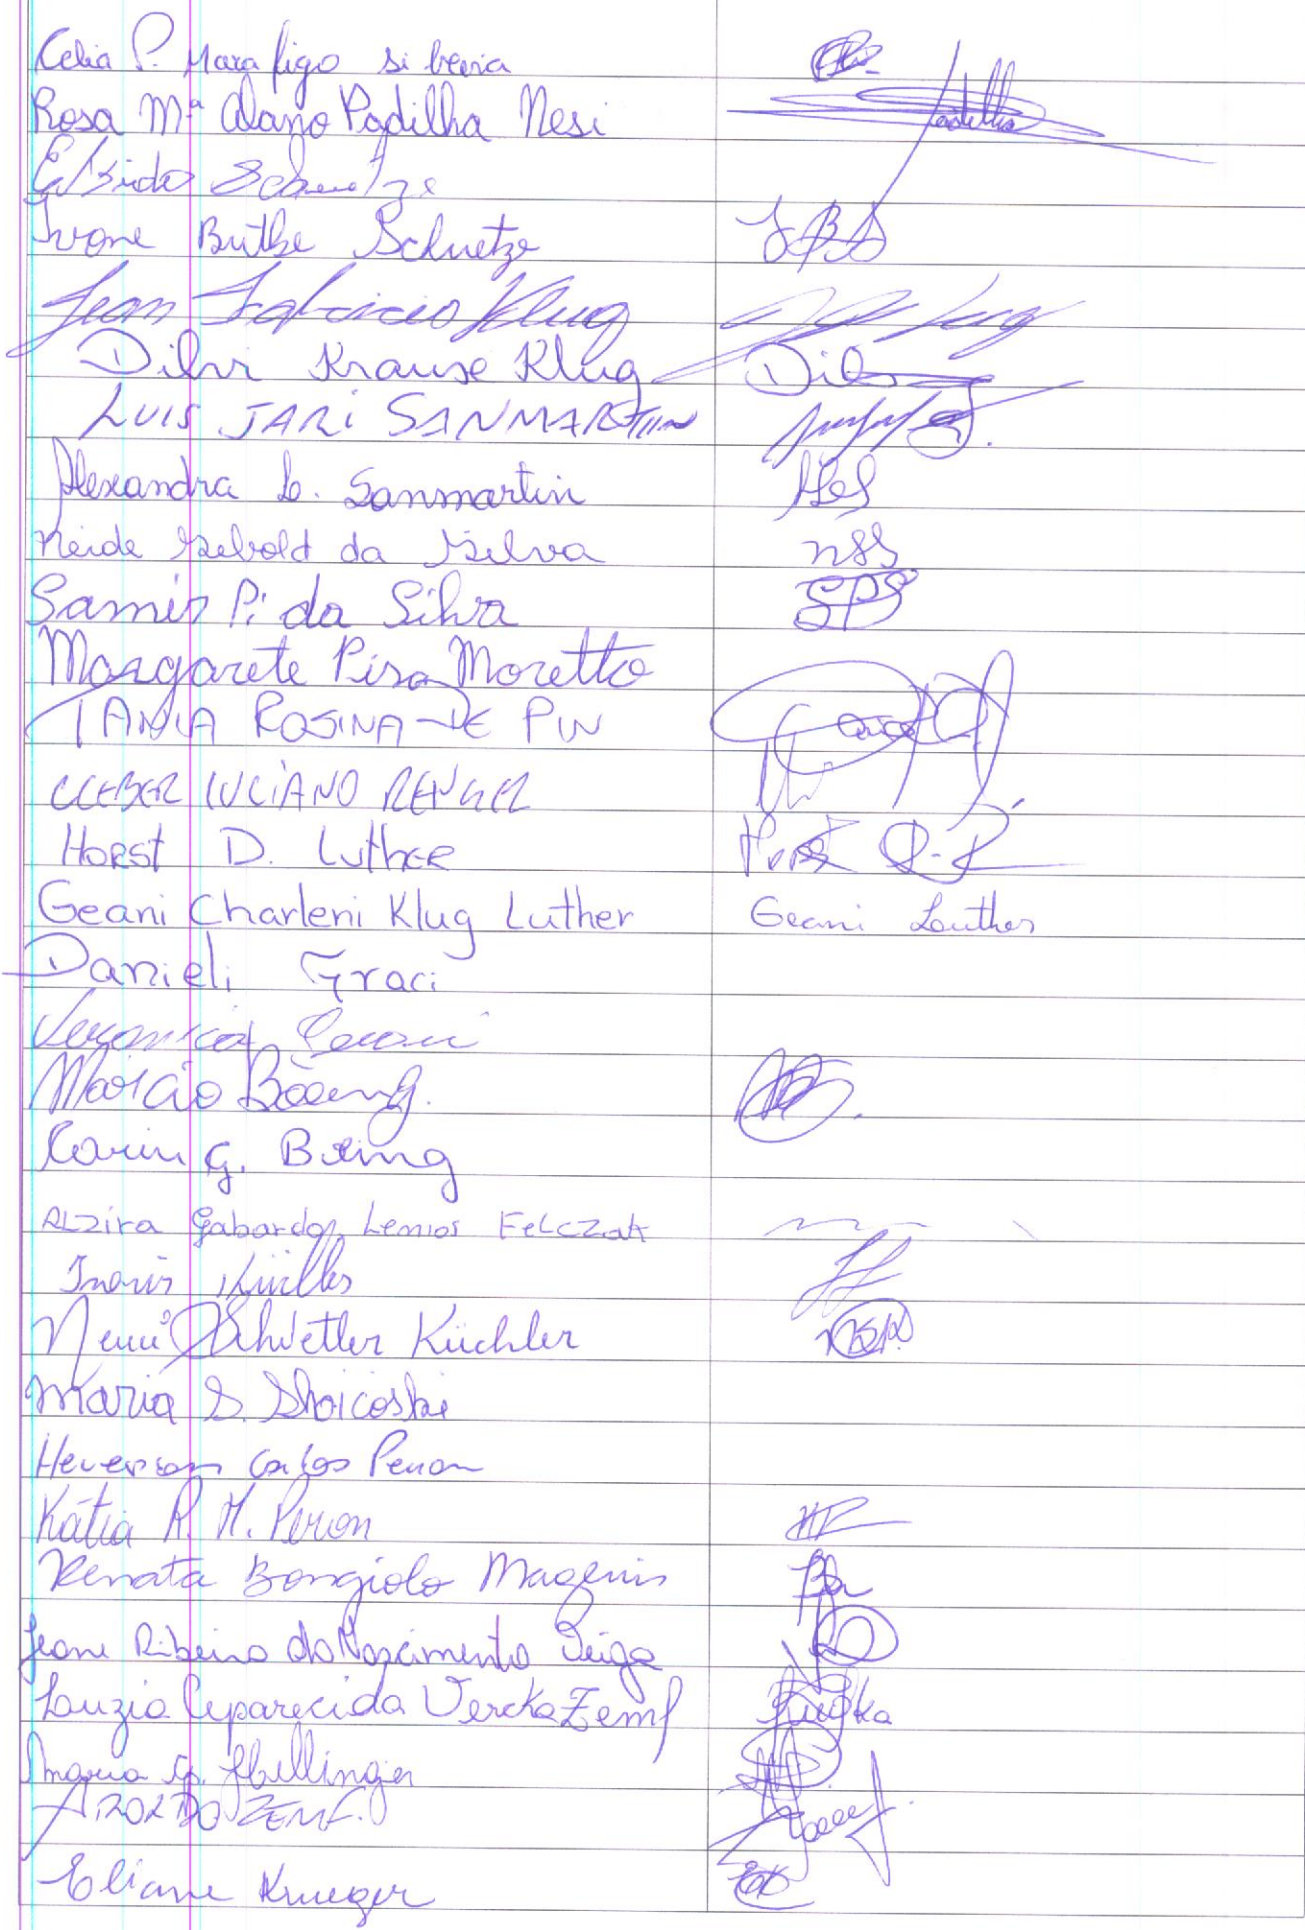 Celia P. Mara figo si beria
Rosa Mª Alano Padilha Nesi Padilha
Elsido Schuetze
Ivone Buthe Schuetze IBS
Jean Fabricio Klug Klug
Dilvi Krause Klug Dil
LUIS JARI SANMARTIN
Alexandra L. Sanmartin ALS
Neide Sebold da Silva NSS
Samir P. da Silva SPS
Margarete Pisa Moretto
TANIA ROSINA DE PIN
CLEBER LUCIANO RENGEL
HORST D. Luther Horst
Geani Charleni Klug Luther Geani Luther
Danieli Graci
Veronica
Marcio Boeing.
Carin G. Boeing
ALzira Gabardo Lemos FeLczak
Küchler
Schwetler Küchler
Maria S. Skoicoski
Heverson Carlos Peron
Kátia R. M. Peron
Renata Bongiolo Magenis
Jeane Ribeiro do Nascimento Veiga
Luzia Aparecida Vercka Zemf
Maria G. Hillinger
AROLDO ZEMF.
Eliane Krueger EK